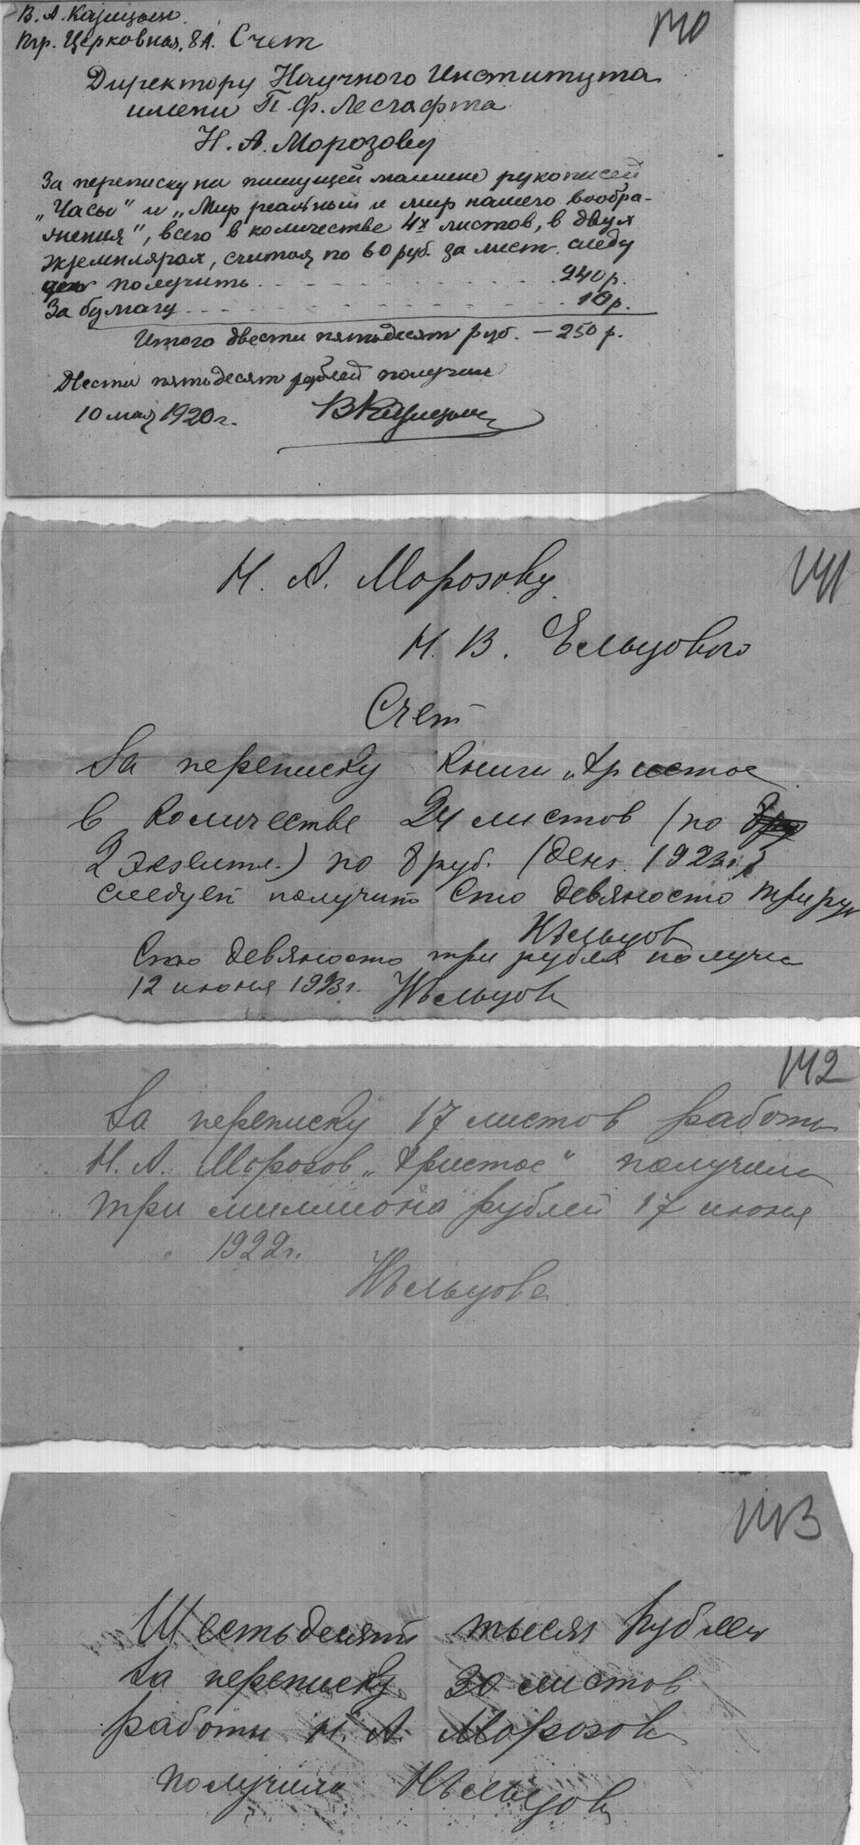 В. А. Казицын
Птр. Церковная, 8 А. Счет
140
Директору Научного Института
имени П. Ф. Лесгафта
Н. А. Морозову
За переписку на пишущей машине рукописей
„Часы" и „Мир реальный и мир нашего вообра-
жения", всего в количестве 4х листов, в двух
экземплярах, считая по 60 руб. за лист следу
получить 240 р.
За бумагу 10 р.
Итого двести пятьдесят руб. — 250 р.
Двести пятьдесят рублей получил
10 мая 1920 г.
141
Н. А. Морозову
Н. В. Ельцового
Счет
За переписку книги „Христос
в количестве 24 листов (по
2 экземпл.) по 8 руб. (ден. 1923 г.)
следует получить сто девяносто три ру
НЕльцов
Сто девяносто три рубля получил
12 июня 1923 г. НЕльцов
142
За переписку 17 листов работы
Н. А. Морозов „Христос" получила
три миллиона рублей 17 июня
1922 г.
НЕльцова
143
Шестьдесят тысяч рублей
за переписку 30 листов
работы Н. А. Морозова
получила НЕльцов